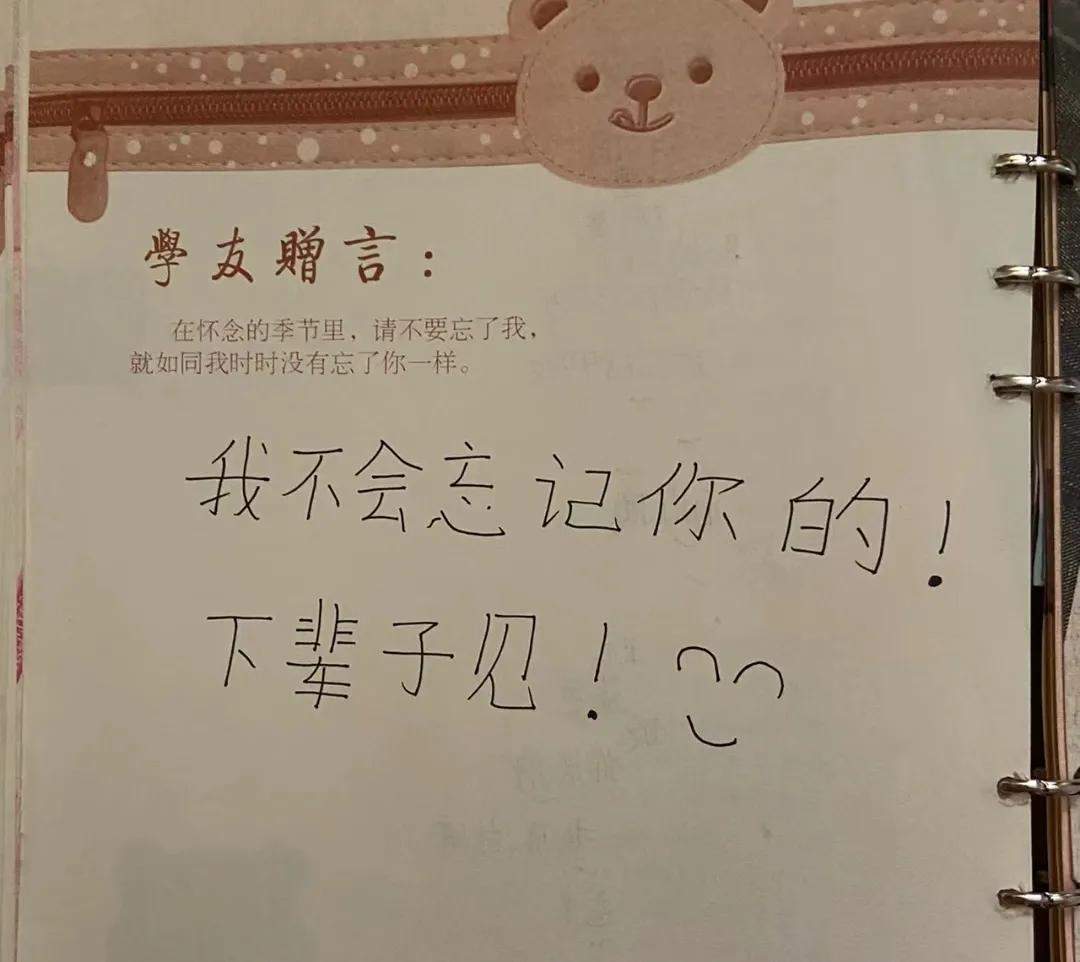 學友贈言：
在怀念的季节里，请不要忘了我，
就如同我时时没有忘了你一样。
我不会忘记你的！
下辈子见！